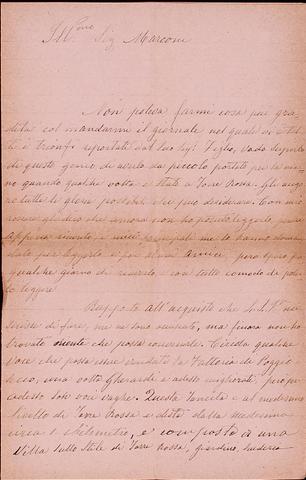 Ill^mo Sig Marconi
Non poteva farmi cosa più gra-
dita col mandarmi il giornale nel quale vi è l'ar-
è trionfi riportati dal suo Sig: Figlio, vado superbo
di questo genio di averlo da piccolo portato per la ma-
no quando qualche volta è stato a Torre Rossa. Gli augu-
ro tutte le glorie possibili che può desiderare. Con mio
dico che ancora non ho potuto leggerlo, perchè
appena ricevuto i miei principali me lo hanno doman-
dato per leggerlo e poi altri Amici, però spero fra
qualche giorno di riaverlo, e con tutto comodo lo po-
trò leggere.
Rapporto all'acquisto che L.S. Ill^ma mi
scrisse di fare, me ne sono occupato, ma finora non ho
trovato niente che possa convenirle. Circola qualche
voce che possa esser venduta la Fattoria di Poggio
secco, una volta Gherardi e adesso migliorata, propr.
adesso Sah. Questa Tenuta è al medesimo
livello di Torre Rossa e dista dalla medesima
circa 1 chilometro, e composta a una
Villa sullo stile di Torre Rossa, giardino,